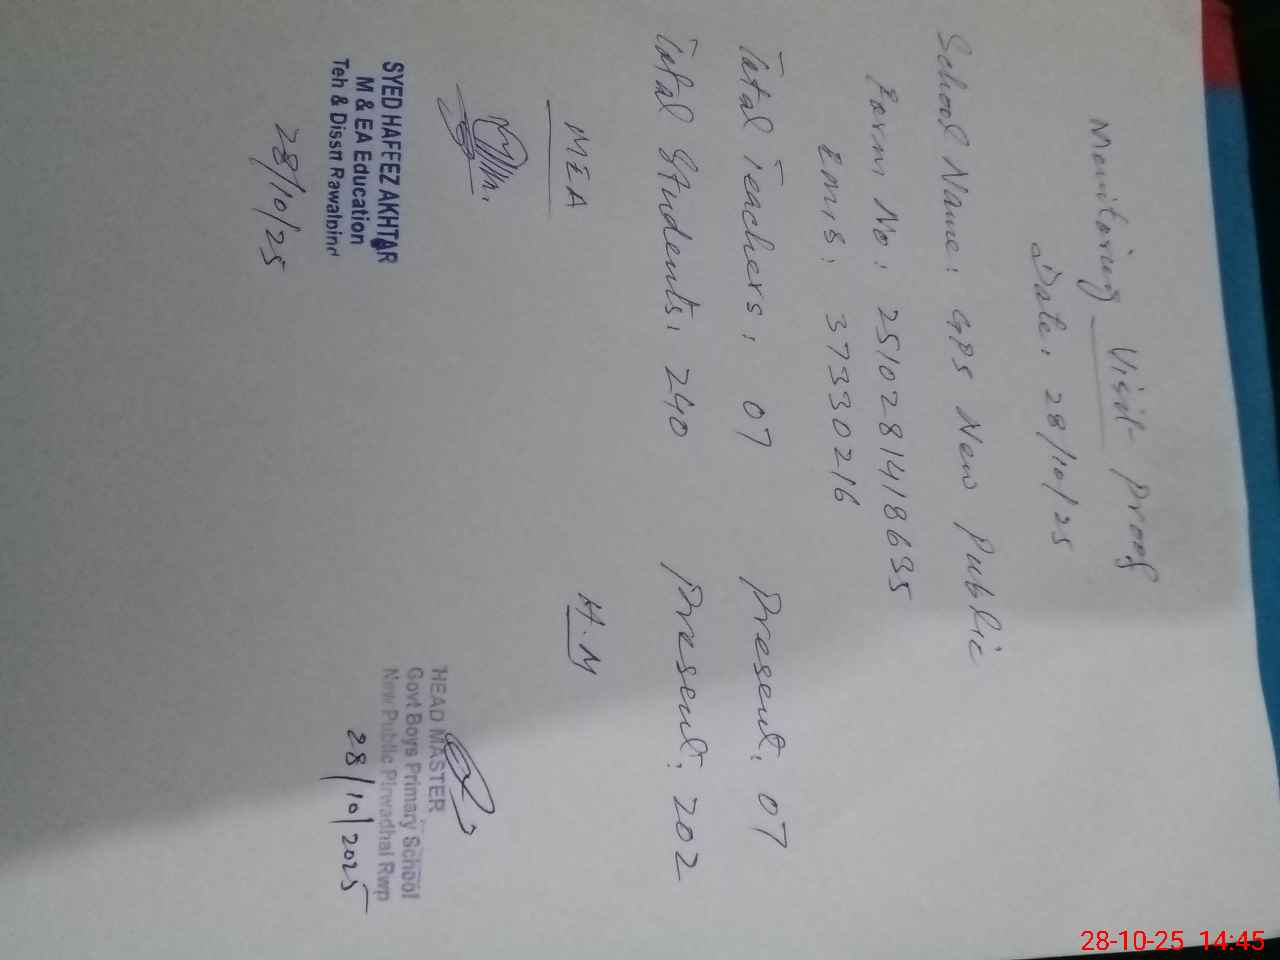 Monitoring Visit Proof
Date: 28/10/25
School Name: GPS New Public
Form No: 2510281418635
Emis: 37330216
Total Teachers: 07 Present: 07
Total Students: 240 Present: 202
MEA
H.M
SYED HAFEEZ AKHTAR
M & EA Education
Teh & Disst Rawalpind
28/10/25
HEAD MASTER
Govt Boys Primary School
New Public Pirwadhai Rwp
28/10/2025
28-10-25 14:45